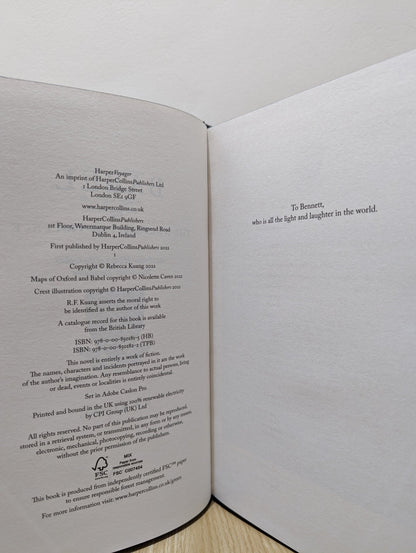 HarperVoyager
An imprint of HarperCollinsPublishers Ltd
1 London Bridge Street
London SE1 9GF
www.harpercollins.co.uk
HarperCollinsPublishers
1st Floor, Watermarque Building, Ringsend Road
Dublin 4, Ireland
First published by HarperCollinsPublishers 2022
1
Copyright © Rebecca Kuang 2022
Maps of Oxford and Babel copyright © Nicolette Caven 2022
Crest illustration copyright © HarperCollinsPublishers 2022
R.F. Kuang asserts the moral right to
be identified as the author of this work
A catalogue record for this book is available
from the British Library
ISBN: 978-0-00-850181-5 (HB)
ISBN: 978-0-00-850182-2 (TPB)
This novel is entirely a work of fiction.
The names, characters and incidents portrayed in it are the work
of the author's imagination. Any resemblance to actual persons, living
or dead, events or localities is entirely coincidental.
Set in Adobe Caslon Pro
Printed and bound in the UK using 100% renewable electricity
by CPI Group (UK) Ltd
All rights reserved. No part of this publication may be reproduced,
stored in a retrieval system, or transmitted, in any form or by any means,
electronic, mechanical, photocopying, recording or otherwise,
without the prior permission of the publishers.
MIX
Paper from
responsible sources
FSC
FSC™ C007454
This book is produced from independently certified FSC™ paper
to ensure responsible forest management.
For more information visit: www.harpercollins.co.uk/green
To Bennett,
who is all the light and laughter in the world.